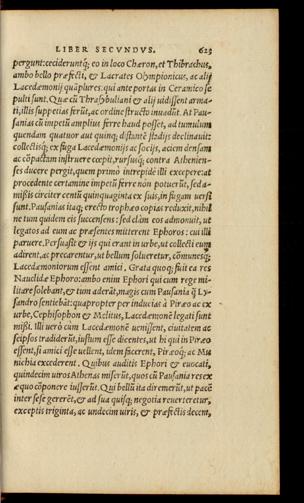 LIBER SECVNDVS. 623
pergunt: cecideruntq́; eo in loco Chæron, et Thibrachus,
ambo bello præfecti, & Lacrates Olympionicus, ac alij
Lacedæmonij quāplures. qui ante portas in Ceramico se
pulti sunt. Quæ cū Thrasybuliani & alij uidissent arma-
ti, illis suppetias ferūt, ac ordine structo inuadūt. At Pau-
sanias cū impetū amplius ferre haud posset, ad tumulum
quendam quatuor aut quinq; distantē stadijs declinauit:
collectisq́; ex fuga Lacedæmonijs ac socijs, aciem densam
ac cōpactam instruere cœpit, rursusq́; contra Athenien-
ses ducere pergit, quem primò intrepidè illi excepere: at
procedente certamine impetū ferre non potuerūt, sed a-
missis circiter centū quinquaginta ex suis, in fugam uersi
sunt. Pausanias itaq; erecto trophæo copias reduxit, nihil
ne tum quidem eis succensens: sed clàm eos admonuit, ut
legatos ad eum ac præsentes mitterent Ephoros: cui illi
paruere. Persuasit & ijs qui erant in urbe, ut collecti eum
adirent, ac precarentur, ut bellum solueretur, cōmunesq́;
Lacedæmoniorum essent amici. Grata quoq; fuit ea res
Nauclidæ Ephoro: ambo enim Ephori qui cum rege mi-
litare solebant, & tum aderāt, magis cum Pausania q̄ Ly-
sandro sentiebāt: quapropter per inducias à Piræo ac ex
urbe, Cephisophon & Melitus, Lacedæmonē legati sunt
mißi. Illi uerò cum Lacedæmonē uenissent, ciuitatem ac
seipsos tradiderūt, iustum esse dicentes, ut hi qui in Piræo
essent, si amici esse uellent, idem facerent, Piræoq́; ac Mu
nichia excederent. Quibus auditis Ephori & euocati,
quindecim uiros Athenas miserūt, quos cū Pausania res ex
æquo cōponere iusserūt. Qui bellū ita diremerūt, ut pacē
inter sese gererēt, & ad sua quisq; negotia reuerteretur,
exceptis triginta, ac undecim uiris, & præfectis decem,